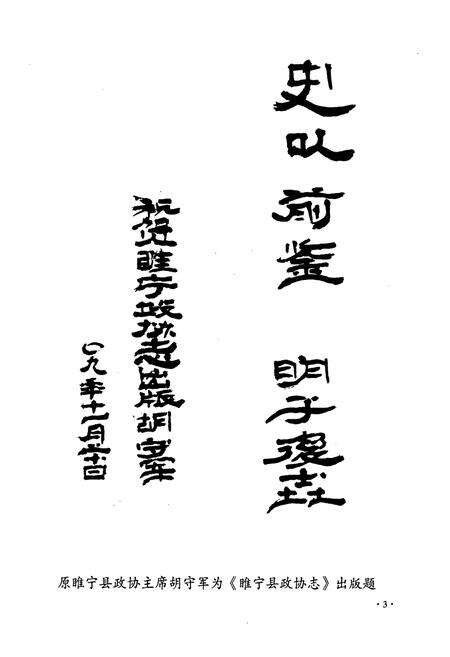 史以前鉴 明于得
祝贺睢宁政协志出版胡守军
〇九年十一月三十日
原睢宁县政协主席胡守军为《睢宁县政协志》出版题
·3·